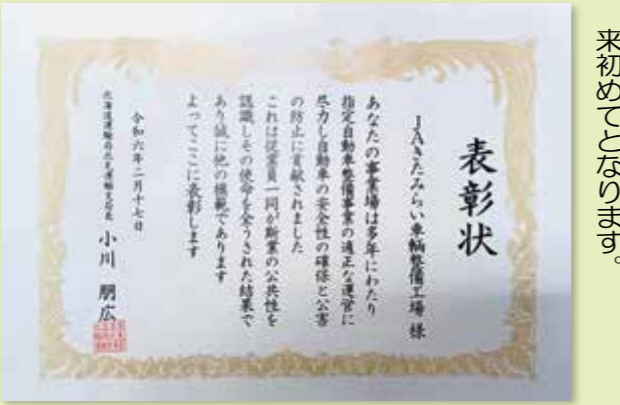 来初めてとなります。
表彰状
JAきたみらい車輌整備工場 様
あなたの事業場は多年にわたり
指定自動車整備事業の適正な運営に
尽力し自動車の安全性の確保と公害
の防止に貢献されました
これは従業員一同が斯業の公共性を
認識しその使命を全うされた結果で
あり誠に他の模範であります
よってここに表彰します
令和六年二月十七日
北海道運輸局北見運輸支局長 小川 朋広